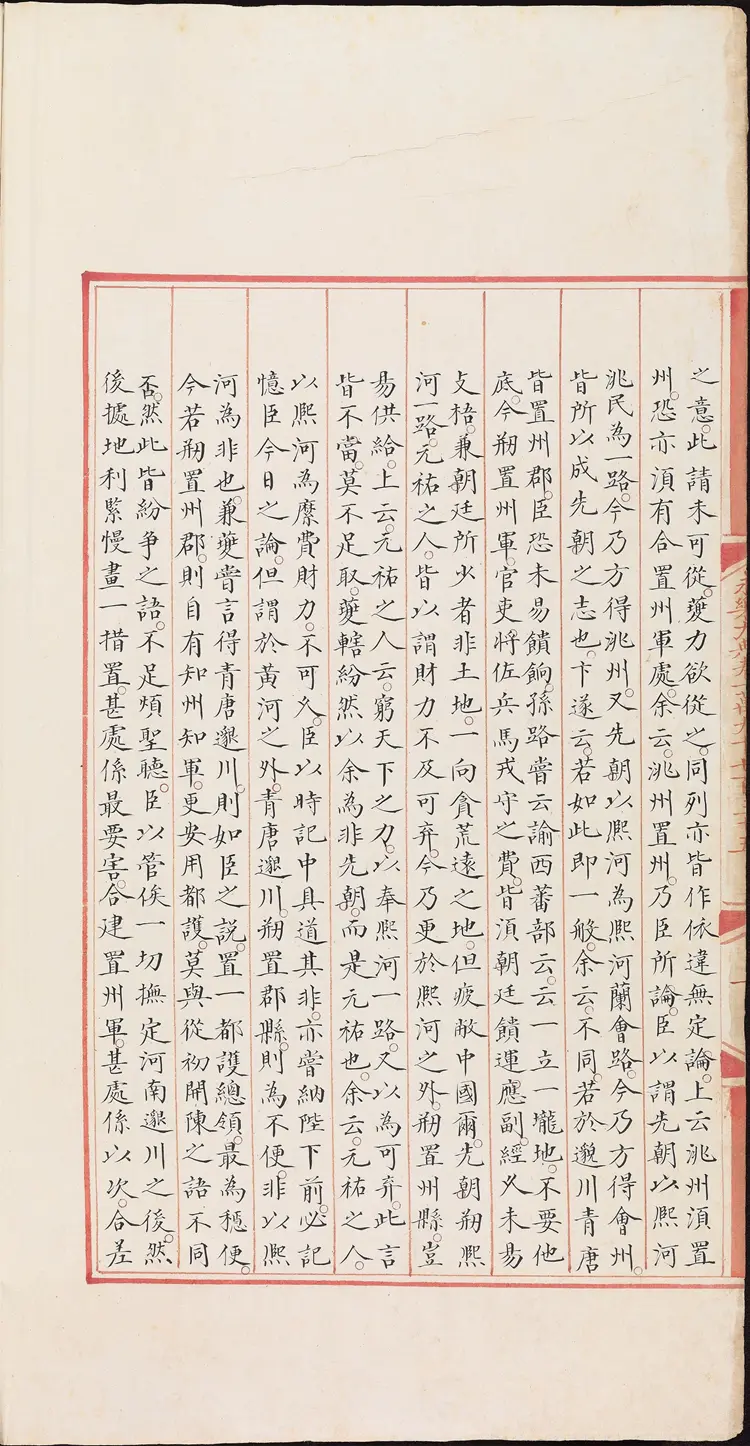 之意。此請未可從。夔力欲從之。同列亦皆作依違無定論。上云洮州湏置
州。恐亦湏有合置州軍處。余云。洮州置州。乃臣所論。臣以謂先朝以熙河
洮民為一路。今乃方得洮州。又先朝以熙河為熙河蘭會路。今乃方得會州。
皆所以成先朝之志也。卞遂云。若如此即一般。余云。不同。若於邈川青唐
皆置州郡。臣恐未易饋餉。孫路嘗云諭西蕃部云。云一立一壠地。不要他
底。今剏置州軍。官吏將佐兵馬戎守之費。皆湏朝廷饋運應副。經乆未易
攴梧。兼朝廷所少者非土地。一向貪荒遠之地。但疲敝中國爾。先朝剏熙
河一路。元祐之人。皆以謂財力不及可弃。今乃更於熙河之外。剏置州縣。豈
易供給。上云。元祐之人云。窮天下之力。以奉熙河一路。又以為可弃。此言
皆不當。莫不足取。夔轄紛然以余為非先朝。而是元祐也。余云。元祐之人。
以熙河為縻費財力。不可乆。臣以時記中具道其非。亦嘗納陛下前。必記
憶臣今日之論。但謂於黃河之外。青唐邈川。剏置郡縣。則為不便。非以熙
河為非也。兼夔嘗言得青唐邈川。則如臣之說。置一都護總領。最為穩便。
今若剏置州郡。則自有知州知軍。更安用都護。莫與從初開陳之語不同
否。然此皆紛爭之語。不足煩聖聽。臣以管俟一切撫定河南邈川之後。然
後據地利緊慢畫一措置。甚處係最要害。合建置州軍。甚處係以次。合差